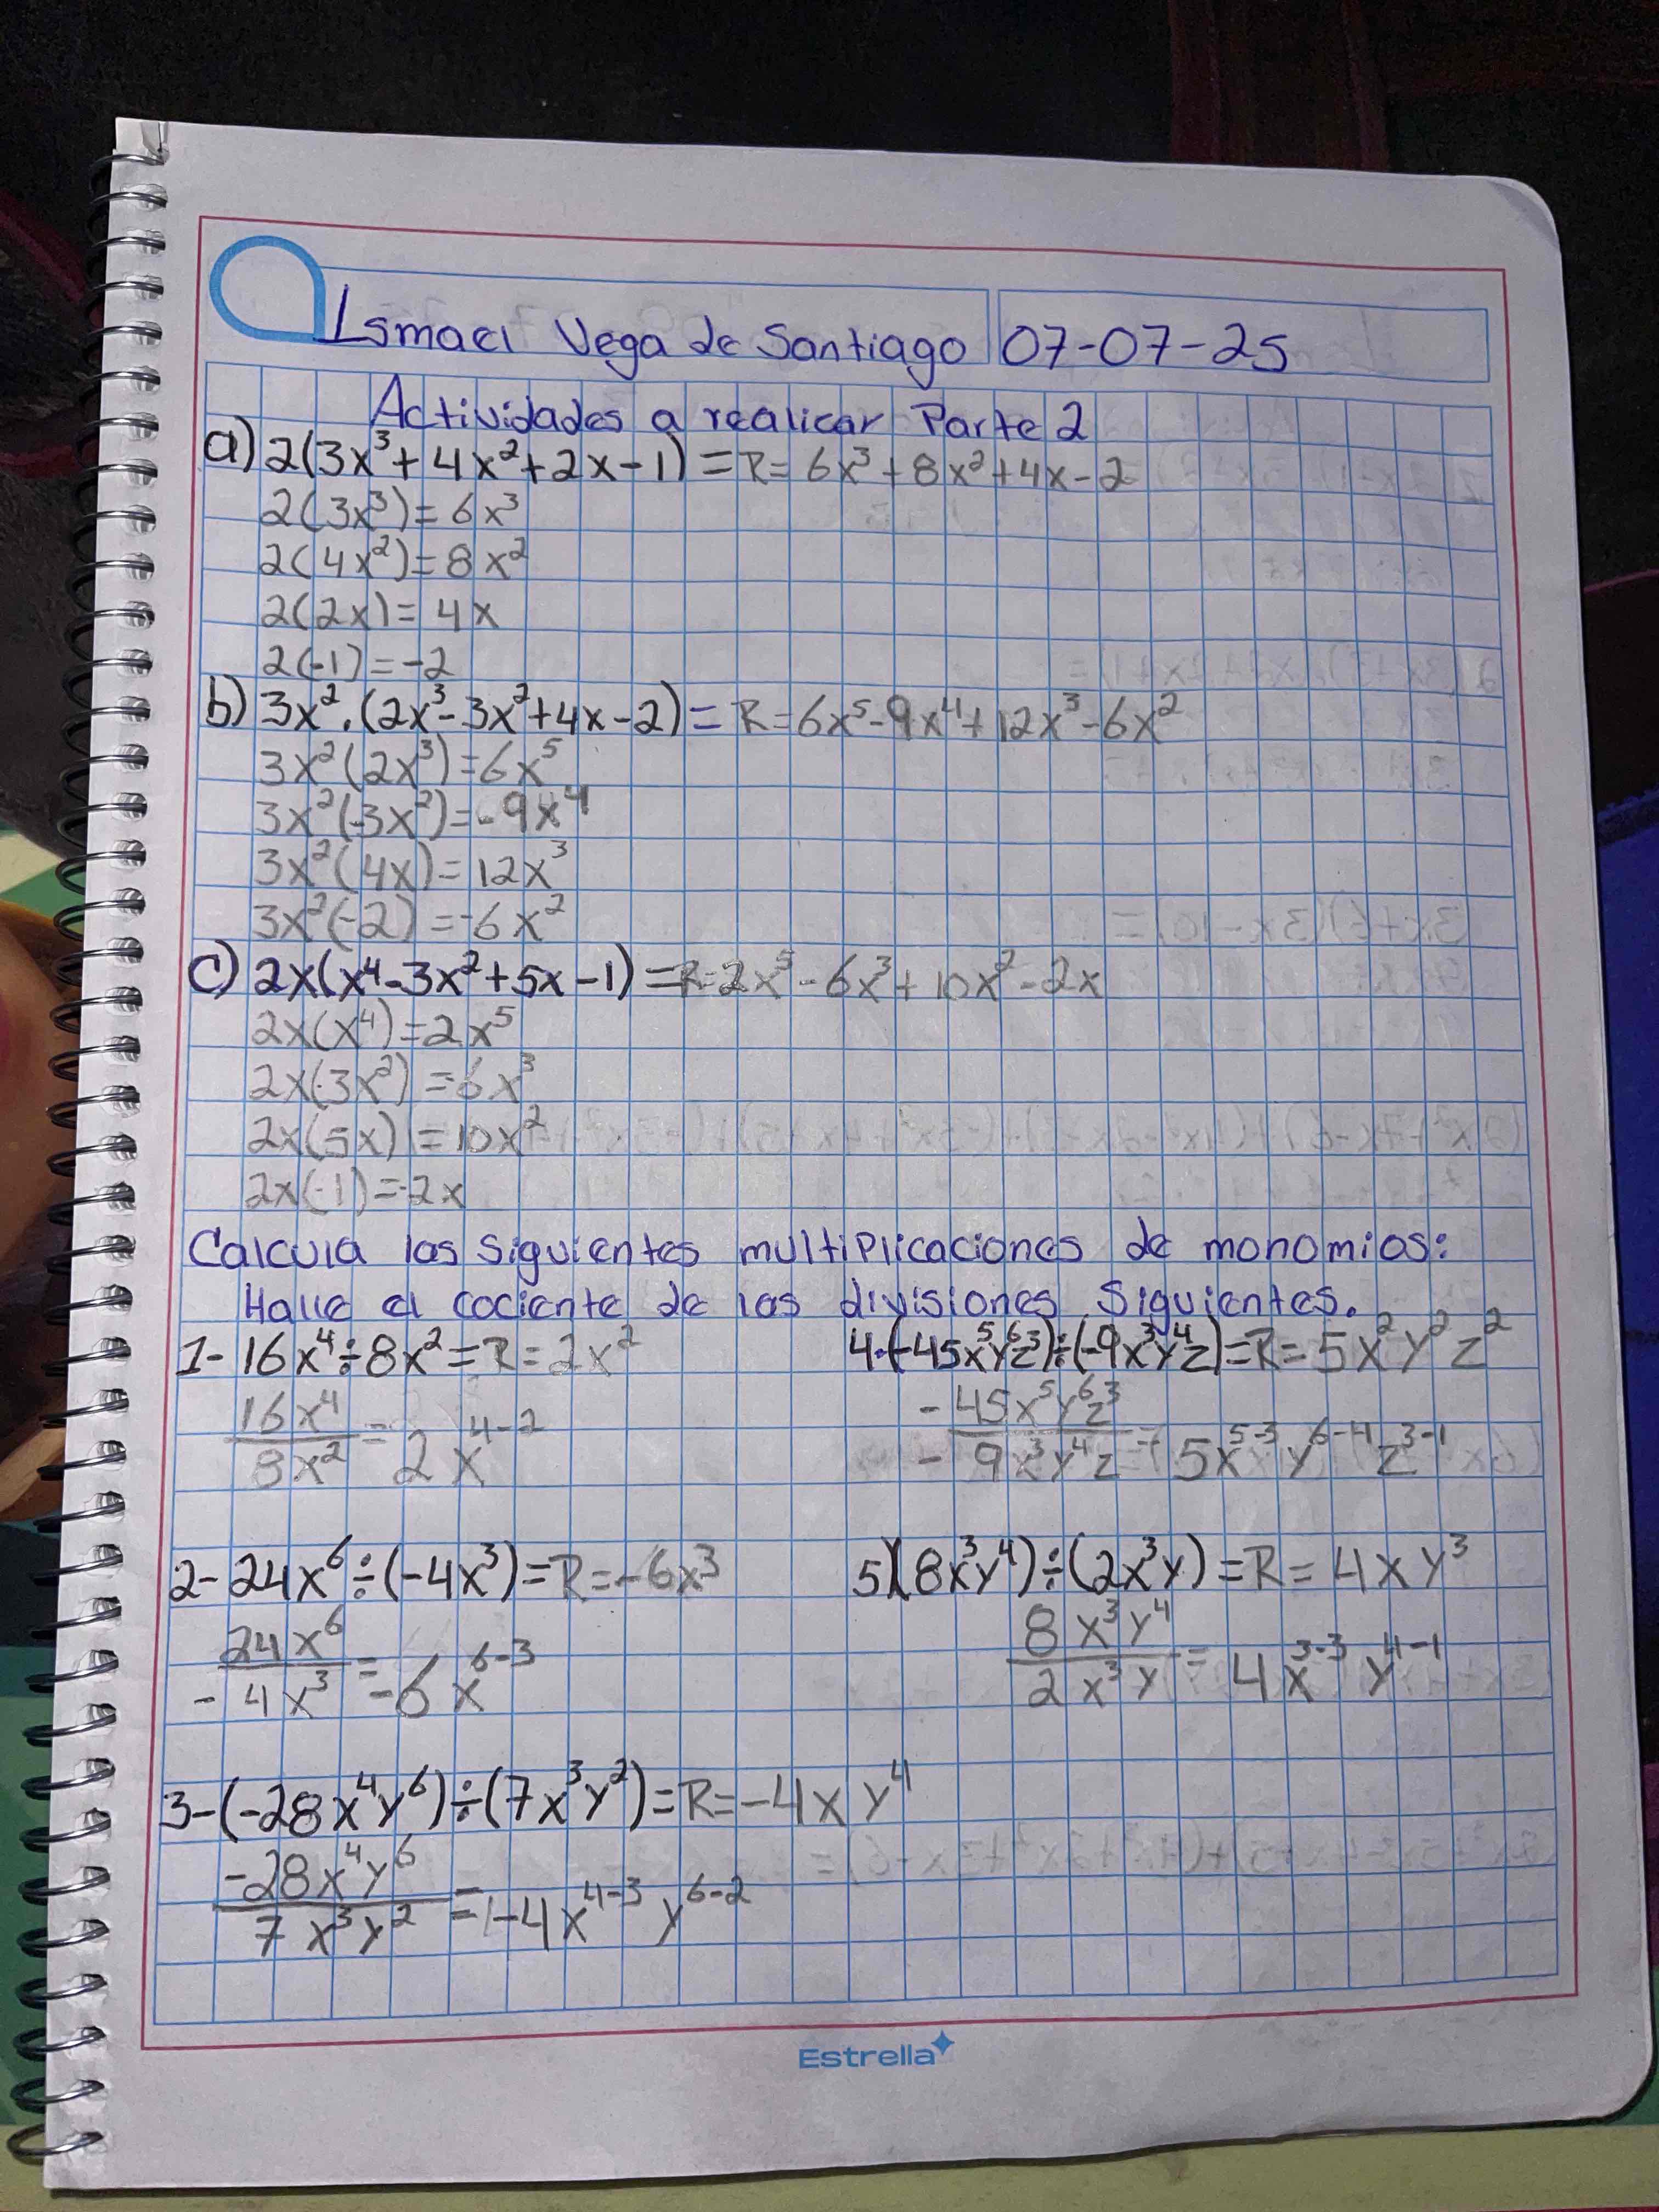 Ismael Vega de Santiago 07-07-25
Actividades a realicar Parte 2
a) 2(3x³+4x²+2x-1)=R=6x³+8x²+4x-2
2(3x³)=6x³
2(4x²)=8x²
2(2x)=4x
2(-1)=-2
b) 3x².(2x³-3x²+4x-2)=R=6x⁵-9x⁴+12x³-6x²
3x²(2x³)=6x⁵
3x²(-3x²)=-9x⁴
3x²(4x)=12x³
3x²(-2)=-6x²
c) 2x(x⁴-3x²+5x-1)=R=2x⁵-6x³+10x²-2x
2x(x⁴)=2x⁵
2x(-3x²)=-6x³
2x(5x)=10x²
2x(-1)=-2x
Calcula las siguientes multiplicaciones de monomios:
Halle el cociente de las divisiones siguientes.
1- 16x⁴÷8x²=R=2x²
16x⁴/8x²=2x⁴⁻²
2- 24x⁶÷(-4x³)=R=-6x³
24x⁶/-4x³=-6x⁶⁻³
3-(-28x⁴y⁶)÷(7x³y²)=R=-4xy⁴
-28x⁴y⁶/7x³y²=-4x⁴⁻³y⁶⁻²
4-(-45x⁵y⁶z³)÷(-9x³y⁴z)=R=5x²y²z²
-45x⁵y⁶z³/-9x³y⁴z=5x⁵⁻³y⁶⁻⁴z³⁻¹
5)(8x³y⁴)÷(2x³y)=R=4xy³
8x³y⁴/2x³y=4x³⁻³y⁴⁻¹
Estrella